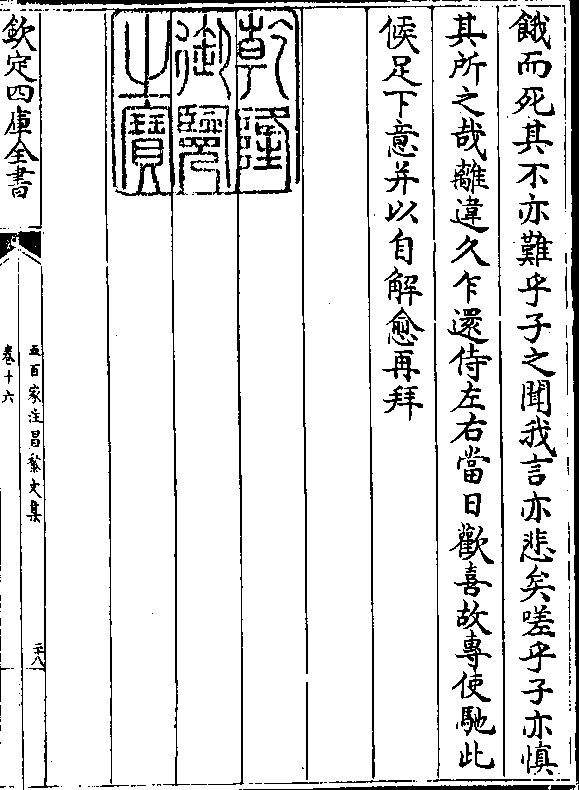 餓而死其不亦難乎子之聞我言亦悲矣嗟乎子亦慎
其所之哉離違久乍還侍左右當日歡喜故專使馳此
候足下意并以自解愈再拜
乾隆
御覽
之寶
欽定四庫全書
五百家注昌黎文集
卷十六
二十八